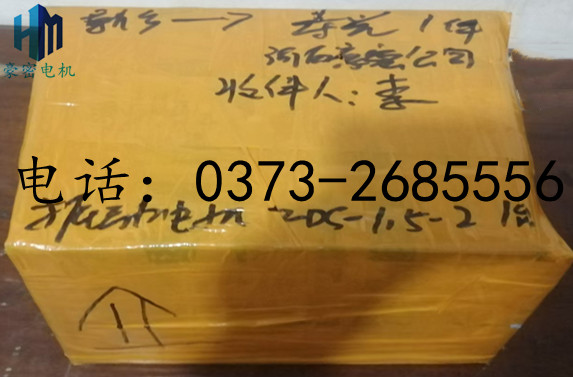 HM
豪密电机
新乡 → 寿光 1件
收件人:李
电话：0373-2685556
振动电机 ZDS-1.5-2 1台